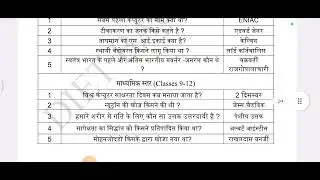 1 सबसे पहला कंप्यूटर का नाम क्या था? ENIAC
2 टीकाकरण का जनक किसे कहते है ? एडवर्ड जेनर
3 तापमान की एस. आई.इकाई क्या है? केल्विन
4 स्थायी बंदोबस्त किसने लागू किया था ? लॉर्ड कॉर्नवालिस
5 स्वतंत्र भारत के पहले और अंतिम भारतीय गवर्नर -जनरल कौन थे ? चक्रवर्ती राजगोपालाचारी
माध्यमिक स्तर (Classes 9-12)
1 विश्व कंप्यूटर साक्षरता दिवस कब मनाया जाता है? 2 दिसम्बर
2 न्यूट्रॉन की खोज किसने की थी ? जेम्स चैडविक
3 हमारे शरीर मे गति के लिए कौन सा उत्तक उत्तरदायी है ? पेशीय उत्तक
4 सापेक्षता का सिद्धांत को किसने प्रतिपादित किया था? अल्बर्ट आइंस्टीन
5 मोहनजोदड़ो किसके द्वारा खोजा गया था? राखालदास बनर्जी
DIET